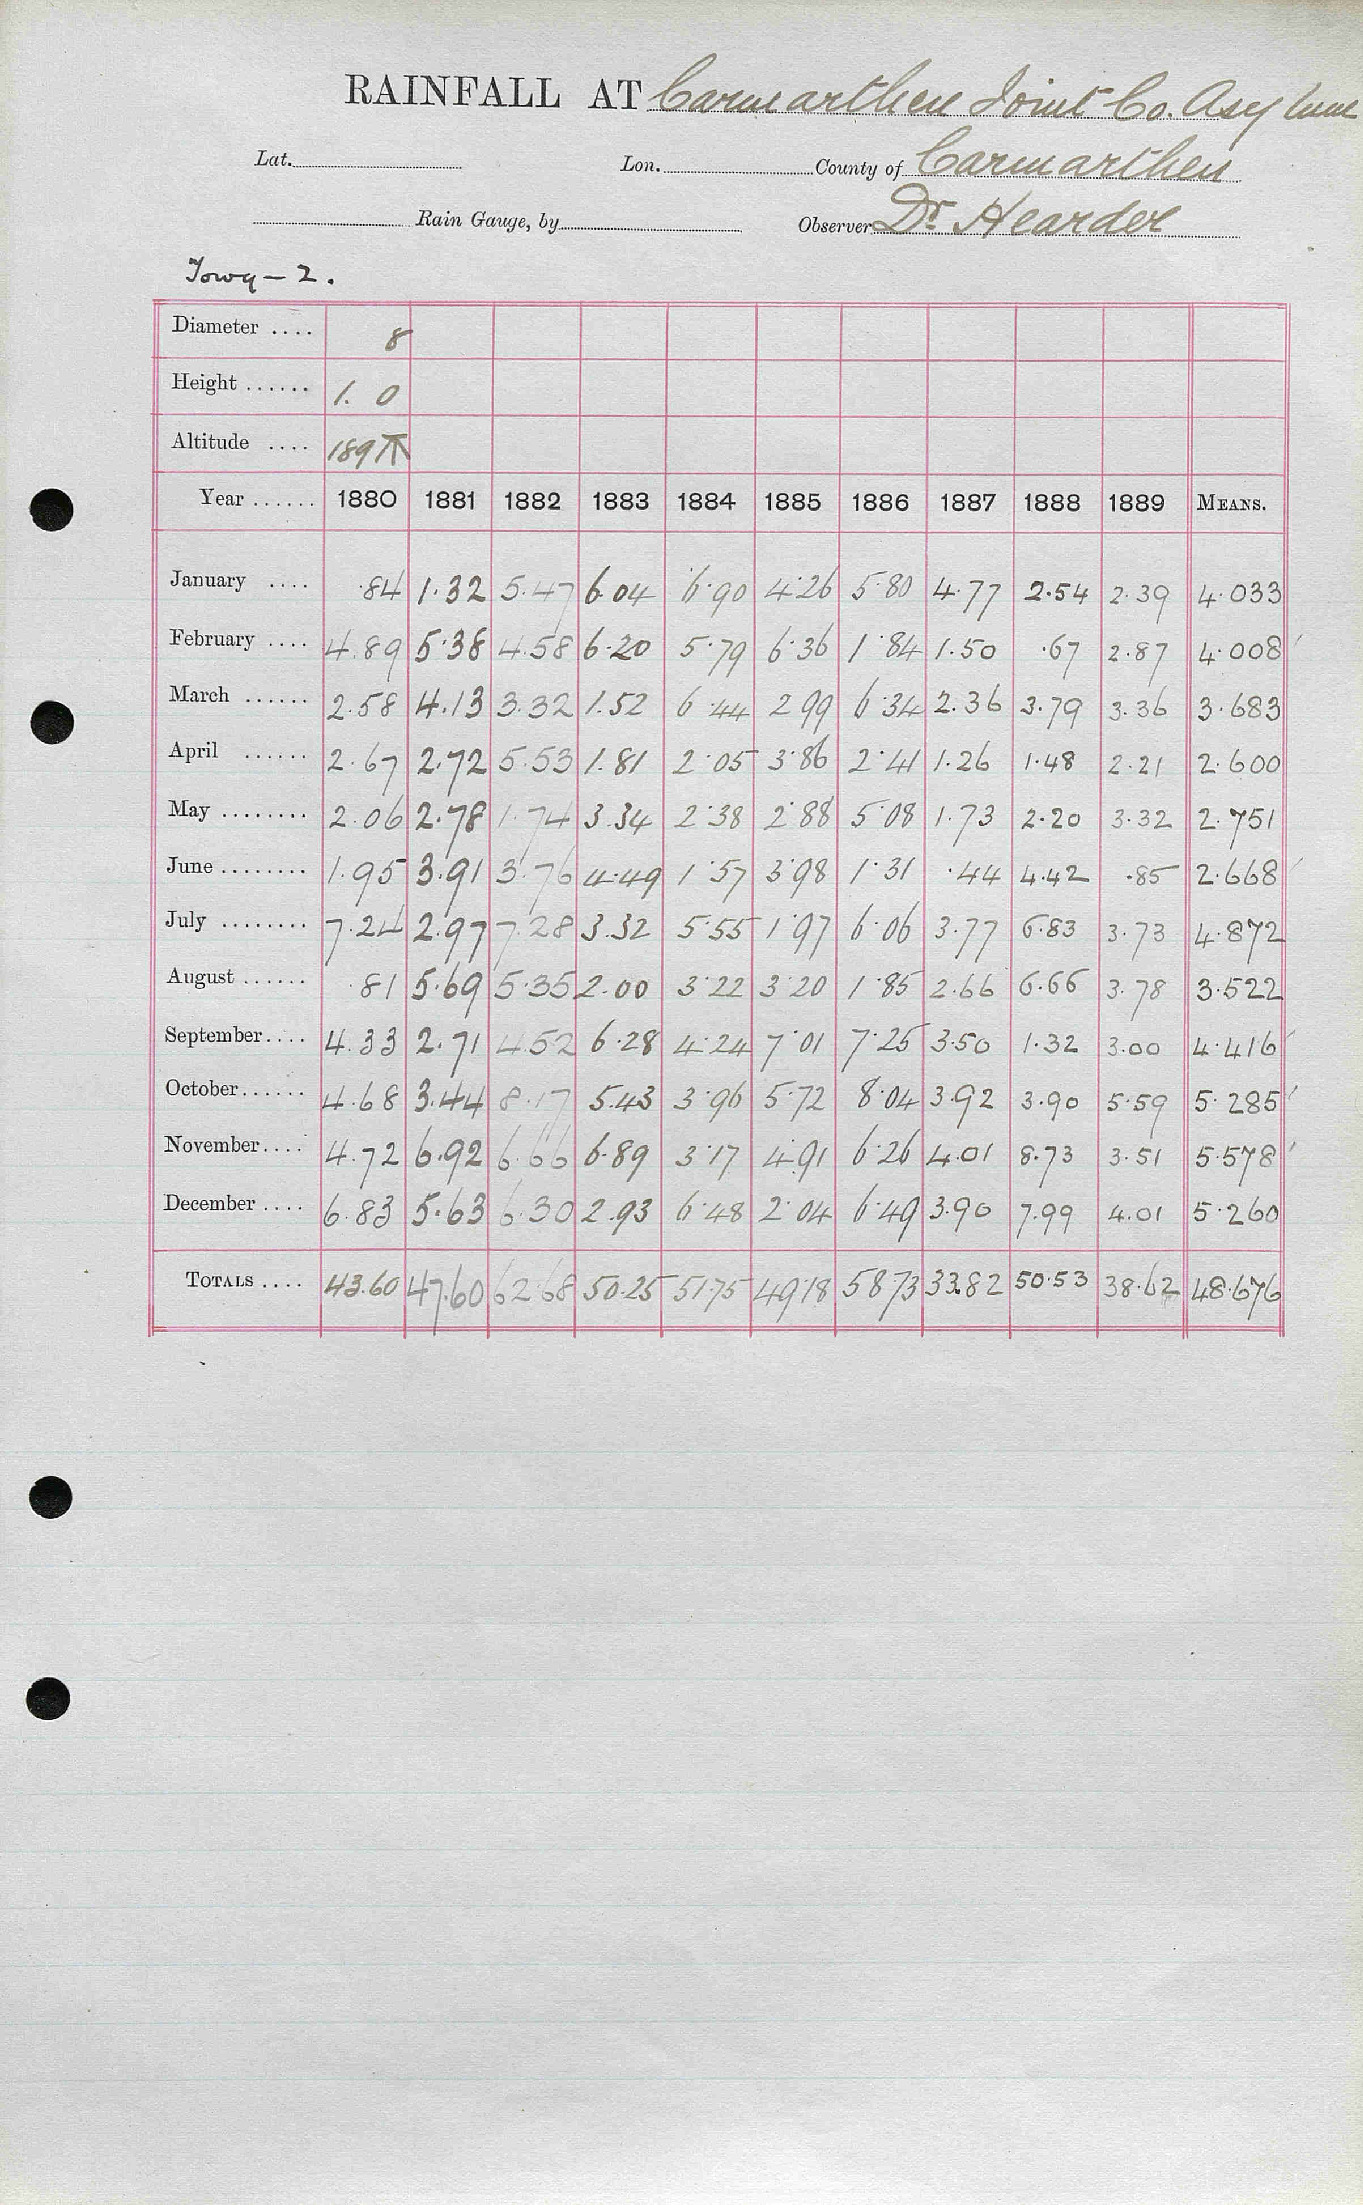 RAINFALL AT Carmarthen Joint Co. Asylum
Lat. Lon. County of Carmarthen
Rain Gauge, by Observer Dr. Hearder
Towy – 2.
Diameter .... 8
Height ...... 1. 0
Altitude .... 189
Year ...... 1880 1881 1882 1883 1884 1885 1886 1887 1888 1889 MEANS.
January .... .84 1.32 5.47 6.04 6.90 4.26 5.80 4.77 2.54 2.39 4.033
February .... 4.89 5.38 4.58 6.20 5.79 6.36 1.84 1.50 .67 2.87 4.008
March ...... 2.58 4.13 3.32 1.52 6.44 2.99 6.34 2.36 3.79 3.36 3.683
April ...... 2.67 2.72 5.53 1.81 2.05 3.86 2.41 1.26 1.48 2.21 2.600
May ........ 2.06 2.78 1.74 3.34 2.38 2.88 5.08 1.73 2.20 3.32 2.751
June ........ 1.95 3.91 3.76 4.49 1.57 3.98 1.31 .44 4.42 .85 2.668
July ........ 7.24 2.97 7.28 3.32 5.55 1.97 6.06 3.77 6.83 3.73 4.872
August ...... .81 5.69 5.35 2.00 3.22 3.20 1.85 2.66 6.66 3.78 3.522
September.... 4.33 2.71 4.52 6.28 4.24 7.01 7.25 3.50 1.32 3.00 4.416
October...... 4.68 3.44 8.17 5.43 3.96 5.72 8.04 3.92 3.90 5.59 5.285
November.... 4.72 6.92 6.66 6.89 3.17 4.91 6.26 4.01 8.73 3.51 5.578
December .... 6.83 5.63 6.30 2.93 6.48 2.04 6.49 3.90 7.99 4.01 5.260
TOTALS .... 43.60 47.60 62.68 50.25 51.75 49.18 58.73 33.82 50.53 38.62 48.676